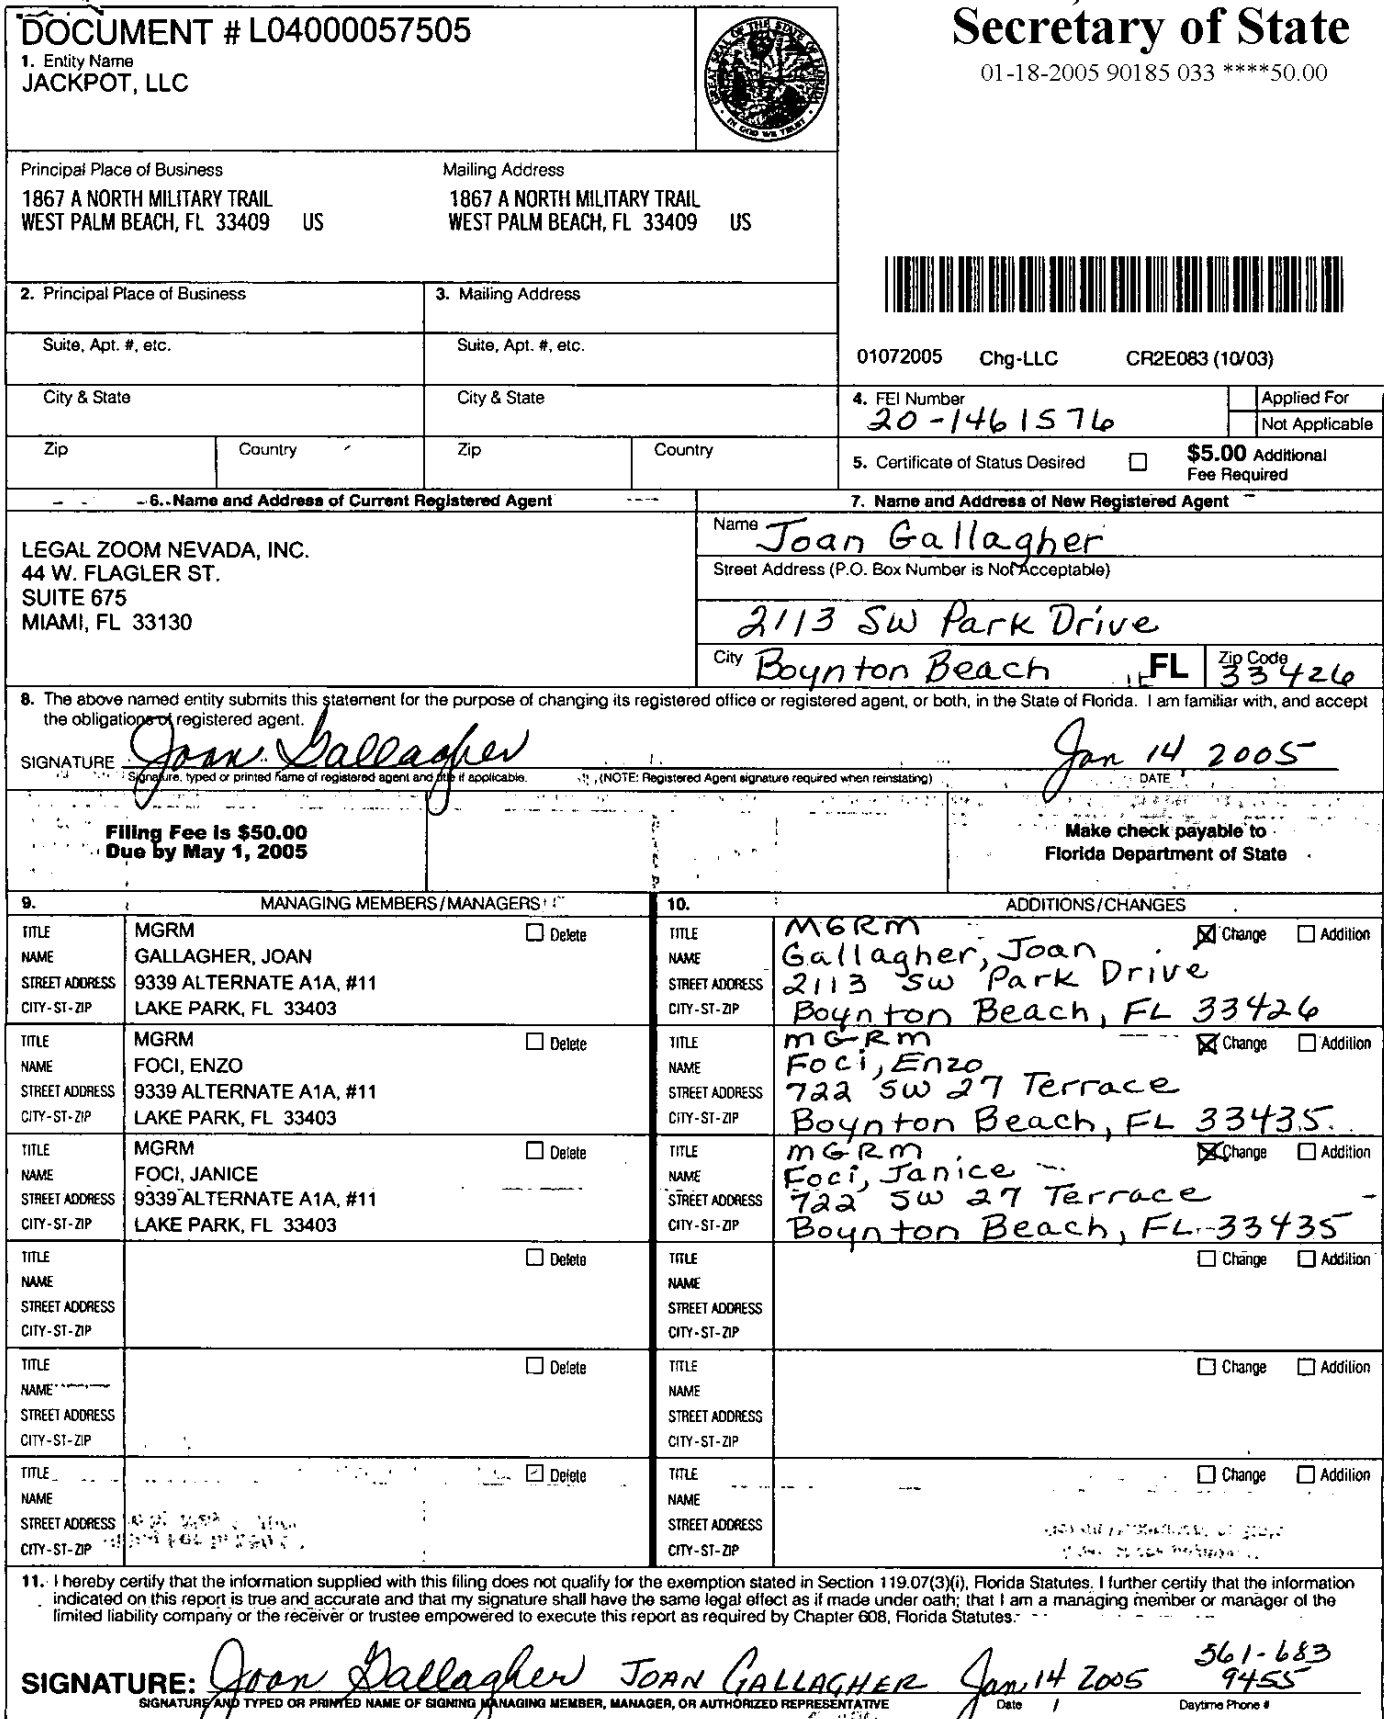 DOCUMENT # L04000057505
1. Entity Name
JACKPOT, LLC
GREAT SEAL OF THE STATE OF FLORIDA
IN GOD WE TRUST
Secretary of State
01-18-2005 90185 033 ****50.00
Principal Place of Business
1867 A NORTH MILITARY TRAIL
WEST PALM BEACH, FL 33409 US
Mailing Address
1867 A NORTH MILITARY TRAIL
WEST PALM BEACH, FL 33409 US
01072005 Chg-LLC CR2E083 (10/03)
2. Principal Place of Business
3. Mailing Address
Suite, Apt. #, etc.
Suite, Apt. #, etc.
City & State
City & State
Zip
Country
Zip
Country
4. FEI Number
20-1461576
Applied For
Not Applicable
5. Certificate of Status Desired
$5.00 Additional
Fee Required
6. Name and Address of Current Registered Agent
LEGAL ZOOM NEVADA, INC.
44 W. FLAGLER ST.
SUITE 675
MIAMI, FL 33130
7. Name and Address of New Registered Agent
Name Joan Gallagher
Street Address (P.O. Box Number is Not Acceptable)
2113 SW Park Drive
City Boynton Beach FL Zip Code 33426
8. The above named entity submits this statement for the purpose of changing its registered office or registered agent, or both, in the State of Florida. I am familiar with, and accept
the obligations of registered agent.
SIGNATURE Joan Gallagher Jan 14 2005
Signature, typed or printed name of registered agent and title if applicable. (NOTE: Registered Agent signature required when reinstating) DATE
Filing Fee is $50.00
Due by May 1, 2005
Make check payable to
Florida Department of State
9. MANAGING MEMBERS/MANAGERS
10. ADDITIONS/CHANGES
TITLE MGRM Delete
NAME GALLAGHER, JOAN
STREET ADDRESS 9339 ALTERNATE A1A, #11
CITY-ST-ZIP LAKE PARK, FL 33403
TITLE MGRM Change Addition
NAME Gallagher, Joan
STREET ADDRESS 2113 SW Park Drive
CITY-ST-ZIP Boynton Beach, FL 33426
TITLE MGRM Delete
NAME FOCI, ENZO
STREET ADDRESS 9339 ALTERNATE A1A, #11
CITY-ST-ZIP LAKE PARK, FL 33403
TITLE MGRM Change Addition
NAME Foci, Enzo
STREET ADDRESS 722 SW 27 Terrace
CITY-ST-ZIP Boynton Beach, FL 33435
TITLE MGRM Delete
NAME FOCI, JANICE
STREET ADDRESS 9339 ALTERNATE A1A, #11
CITY-ST-ZIP LAKE PARK, FL 33403
TITLE MGRM Change Addition
NAME Foci, Janice
STREET ADDRESS 722 SW 27 Terrace
CITY-ST-ZIP Boynton Beach, FL 33435
TITLE Delete
NAME
STREET ADDRESS
CITY-ST-ZIP
TITLE Change Addition
NAME
STREET ADDRESS
CITY-ST-ZIP
TITLE Delete
NAME
STREET ADDRESS
CITY-ST-ZIP
TITLE Change Addition
NAME
STREET ADDRESS
CITY-ST-ZIP
TITLE Delete
NAME
STREET ADDRESS
CITY-ST-ZIP
TITLE Change Addition
NAME
STREET ADDRESS
CITY-ST-ZIP
11. I hereby certify that the information supplied with this filing does not qualify for the exemption stated in Section 119.07(3)(i), Florida Statutes. I further certify that the information
indicated on this report is true and accurate and that my signature shall have the same legal effect as if made under oath; that I am a managing member or manager of the
limited liability company or the receiver or trustee empowered to execute this report as required by Chapter 608, Florida Statutes.
SIGNATURE: Joan Gallagher JOAN GALLAGHER Jan 14 2005 561-683
9455
SIGNATURE AND TYPED OR PRINTED NAME OF SIGNING MANAGING MEMBER, MANAGER, OR AUTHORIZED REPRESENTATIVE Date Daytime Phone #